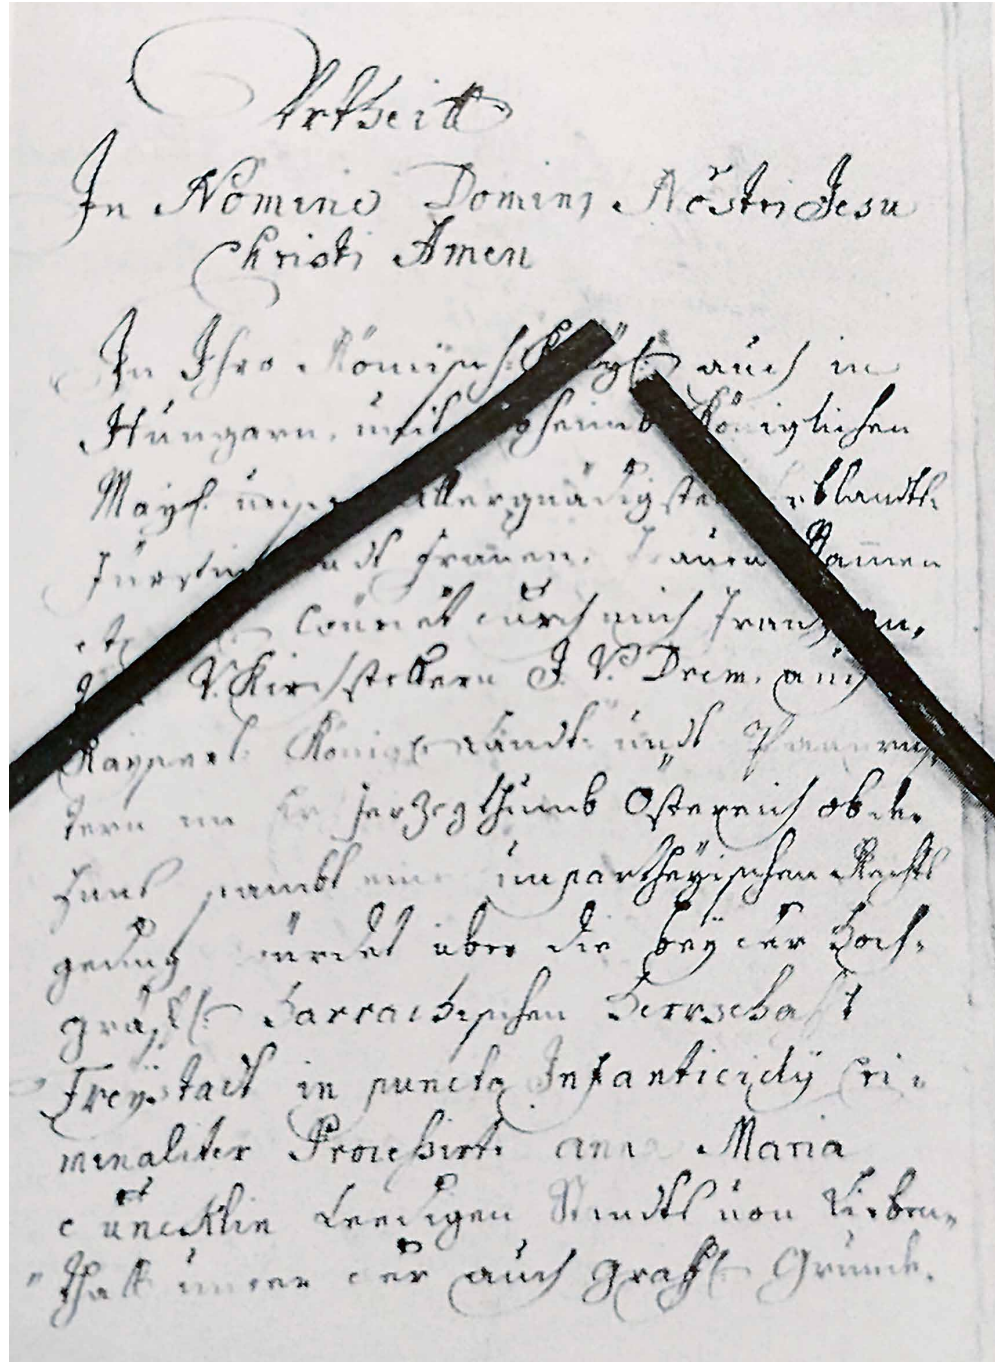 Urtheill
In Nomine Domini Nostri Jesu
Christi Amen
In Ihro Römisch: Kayßl: auch in
Hungarn, und Königlichen
Mayß. unser Allergnädigsten Erblandts
Fürstin undt Frauen, Frauen Namen
etc. durch mich Frantz
V. Kirchstettern J. V. Drem. auch
Kayserl: Königl: Landt: undt Paanrich,
tern im Erzherzogthumb Österreich ob der
Enns sambt einem unpartheyischen Rechts
geding über die bey der Hoch,
gräffl: Harrachischen Herrschafft
Freystadt in puncto Infanticidÿ Cri,
minaliter Processirte Anna Maria
Leedigen Standts von Lieben,
thall unter der auch gräffl: Grundt.